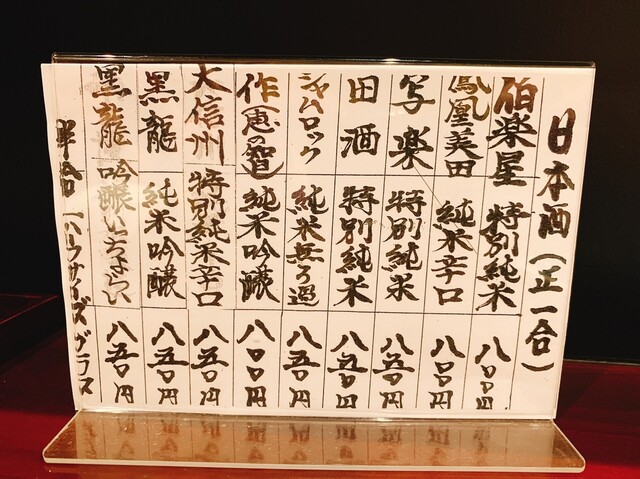 日本酒（正一合）
伯楽星 特別純米 八〇〇円
鳳凰美田 純米辛口 八〇〇円
写楽 特別純米 八五〇円
田酒 特別純米 八五〇円
シャムロック 純米無ろ過 八五〇円
作（恵の智） 純米吟醸 八〇〇円
大信州 特別純米辛口 八五〇円
黒龍 純米吟醸 八五〇円
黒龍 吟醸いっちょらい 八五〇円
半合（ハーフサイズグラス